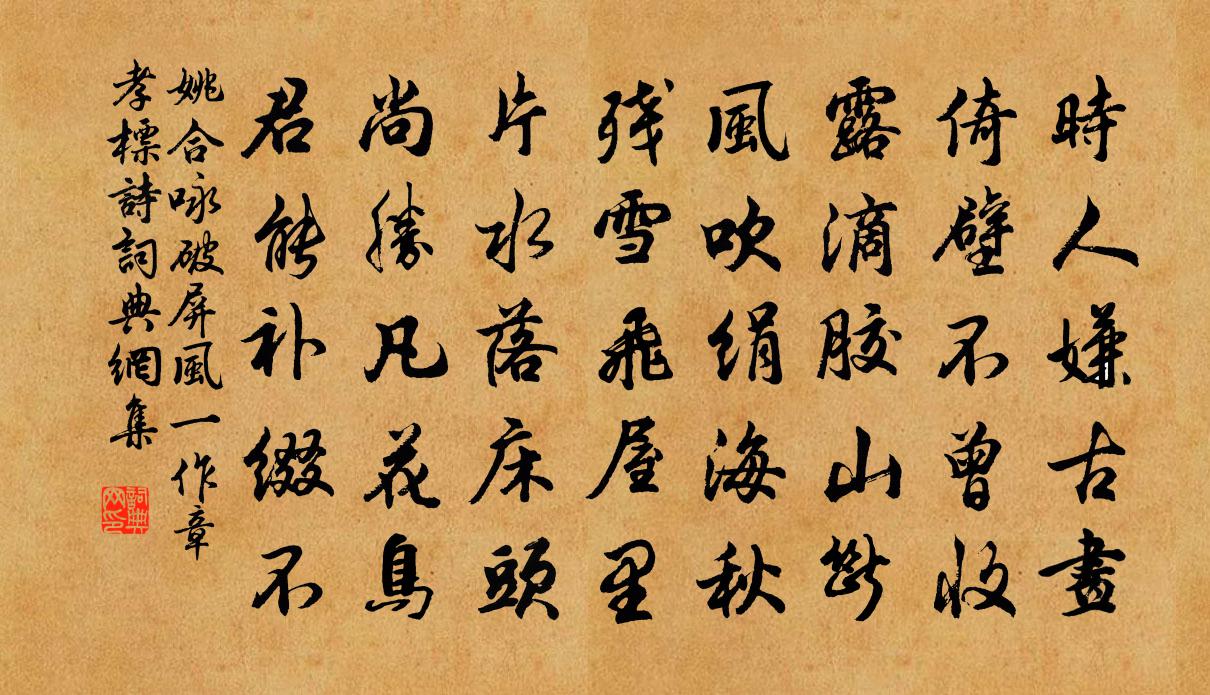 時人嫌古畫
倚壁不曾收
露滴膠山斷
風吹绢海秋
残雪飛屋里
片水落床頭
尚勝凡花鳥
君能补綴不
姚合咏破屏風一作章
孝標詩詞典網集
詞典
网印